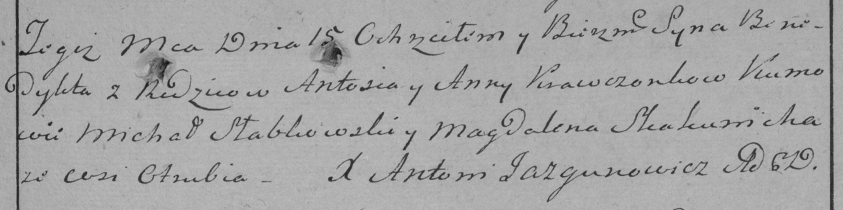 Tegiż Mca Dnia 15 Ochrzciłem y Bierzmc Syna Bene-
dykta z Rodzicow Antosia y Anny Krawczonkow Kumo
wie Michał Stabkowski y Magdalena Skakunicha
ze wsi Otrubia - X Antoni Jazgunowicz